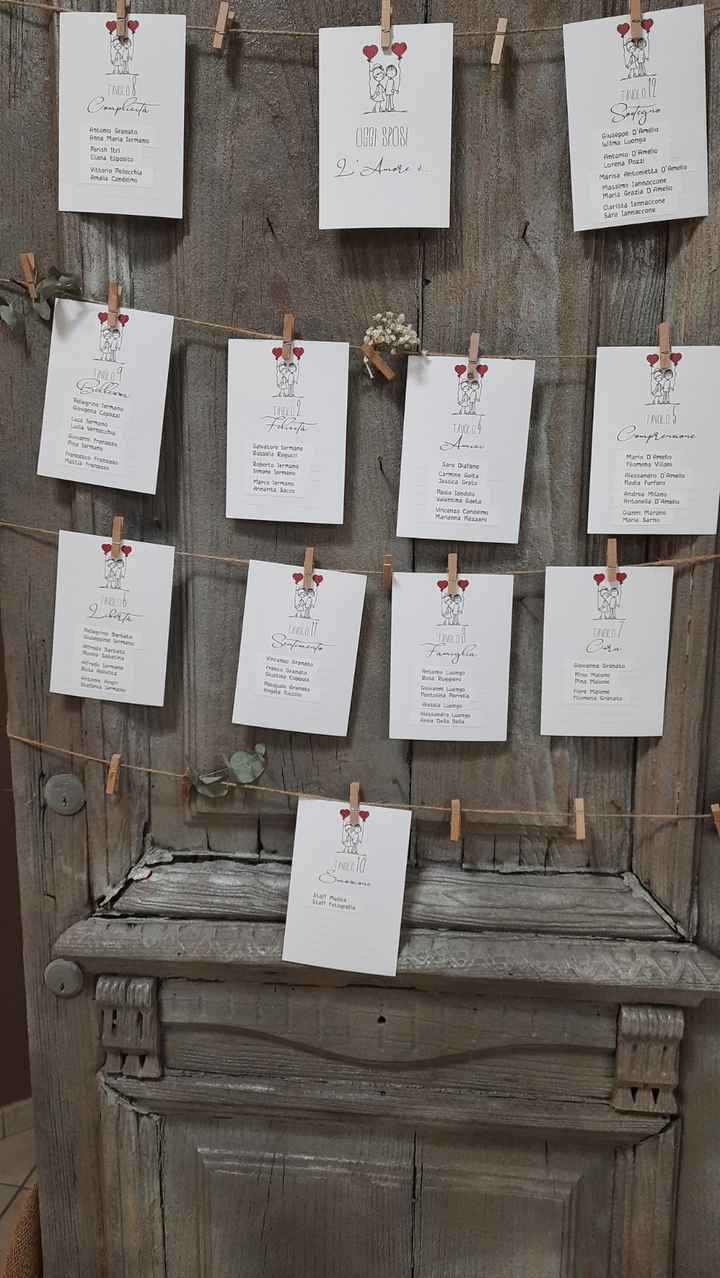 TAVOLO 8
Complicità
Antonio Granato
Anna Maria Sermano
Parish Itri
Elena Esposito
Vittorio Pellecchia
Amalia Candelmo
OGGI SPOSI
L'Amore è...
TAVOLO 12
Sostegno
Giuseppe D'Amelio
Wilma Luongo
Antonio D'Amelio
Lorena Pozzi
Marisa Antonietta D'Amelio
Massimo Iannaccone
Maria Grazia D'Amelio
Clarissa Iannaccone
Sara Iannaccone
TAVOLO 9
Bellezza
Pellegrino Sermano
Giovanna Capozzi
Luca Sermano
Lucia Vernacchia
Giovanni Franzese
Pina Sermano
Francesco Franzese
Mattia Franzese
TAVOLO 2
Felicità
Salvatore Sermano
Roberto Sermano
Simona Sermano
Marco Sermano
Armanta Sacco
TAVOLO 4
Amici
Sara Diafano
Carmone Gaita
Jessica Grato
Paolo Iandolo
Valentina Gaeta
Vincenzo Candelmo
Marianna Mazzani
TAVOLO 5
Comprensione
Mario D'Amelio
Filomena Villani
Alessandro D'Amelio
Nadia Furfaro
Andrea Milano
Antonella D'Amelio
Gianni Marano
Maria Sarno
TAVOLO 6
Libertà
Pellegrino Barbato
Giuseppina Sermano
Alfredo Barbato
Alfredo Sermano
Antonio Angri
Stefania Sermano
TAVOLO 11
Sentimento
Vincenzo Granato
Franco Granato
Giustina Esposito
Pasquale Granato
TAVOLO 3
Famiglia
Antonio Luongo
Rosa Ruggiero
Giovanni Luongo
Alessia Luongo
Alessandro Luongo
Anna Della Sala
TAVOLO 7
Cura
Giovanna Granato
Nino Maione
Pina Maione
Fiore Maione
Filomena Granato
TAVOLO 10
Staff Musica
Staff Fotografia